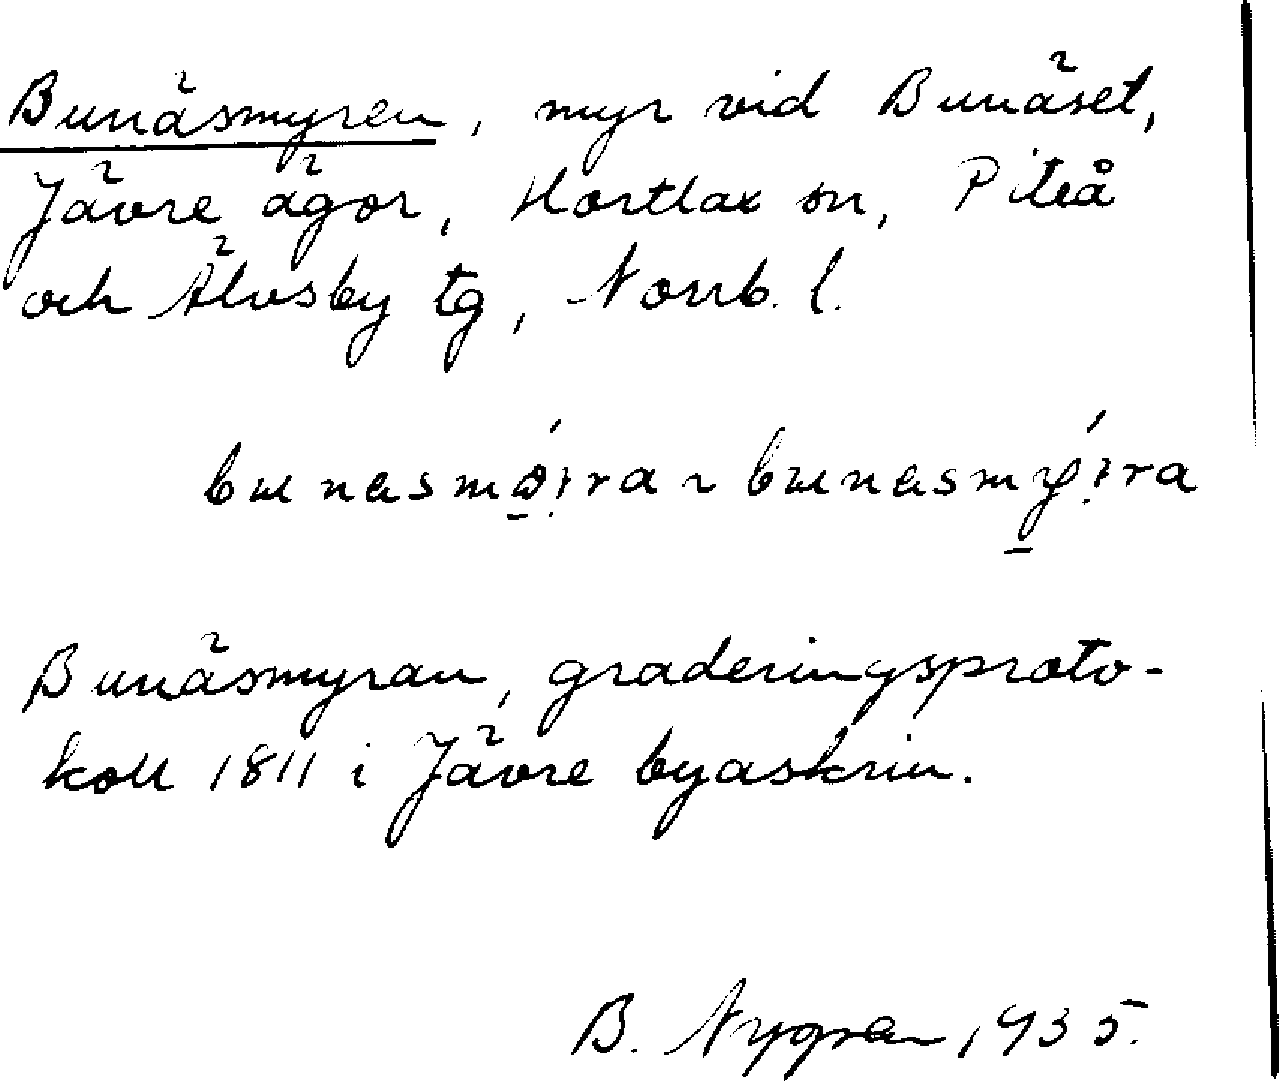 Bunäsmyren, myr vid Bunäset,
Jävre ägor, Hortlax sn, Piteå
och Älvsby tg, Norrb. l.
Bunäsmyran, graderingsproto-
koll 1811 i Jävre byaskrin.
B. Nygren, 1935.